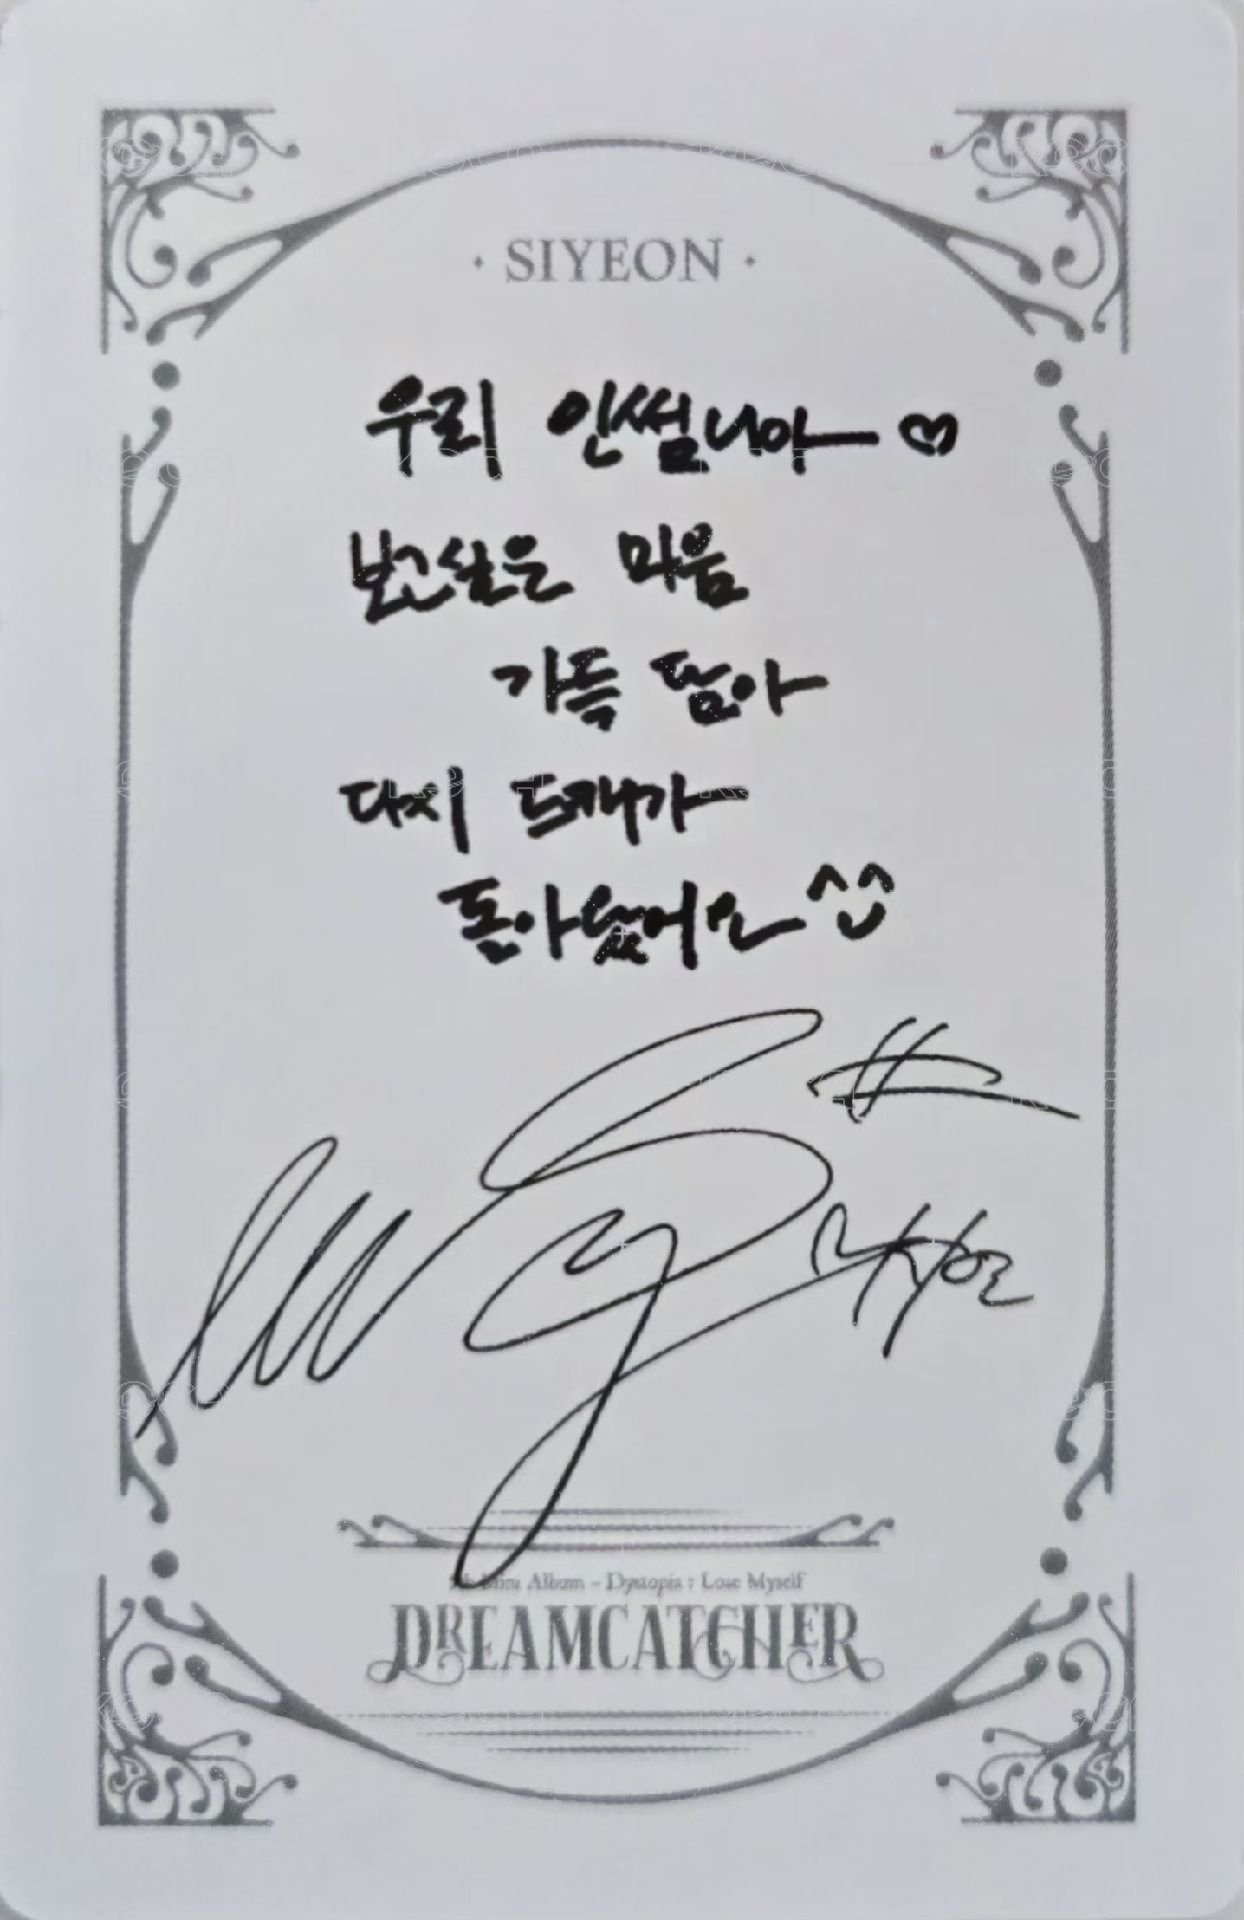 · SIYEON ·
우리 인썸니아 ♡
보고싶은 마음
가득 담아
다시 드캐가
돌아왔어요 ^^
Mini Album - Dystopia : Lose Myself
DREAMCATCHER